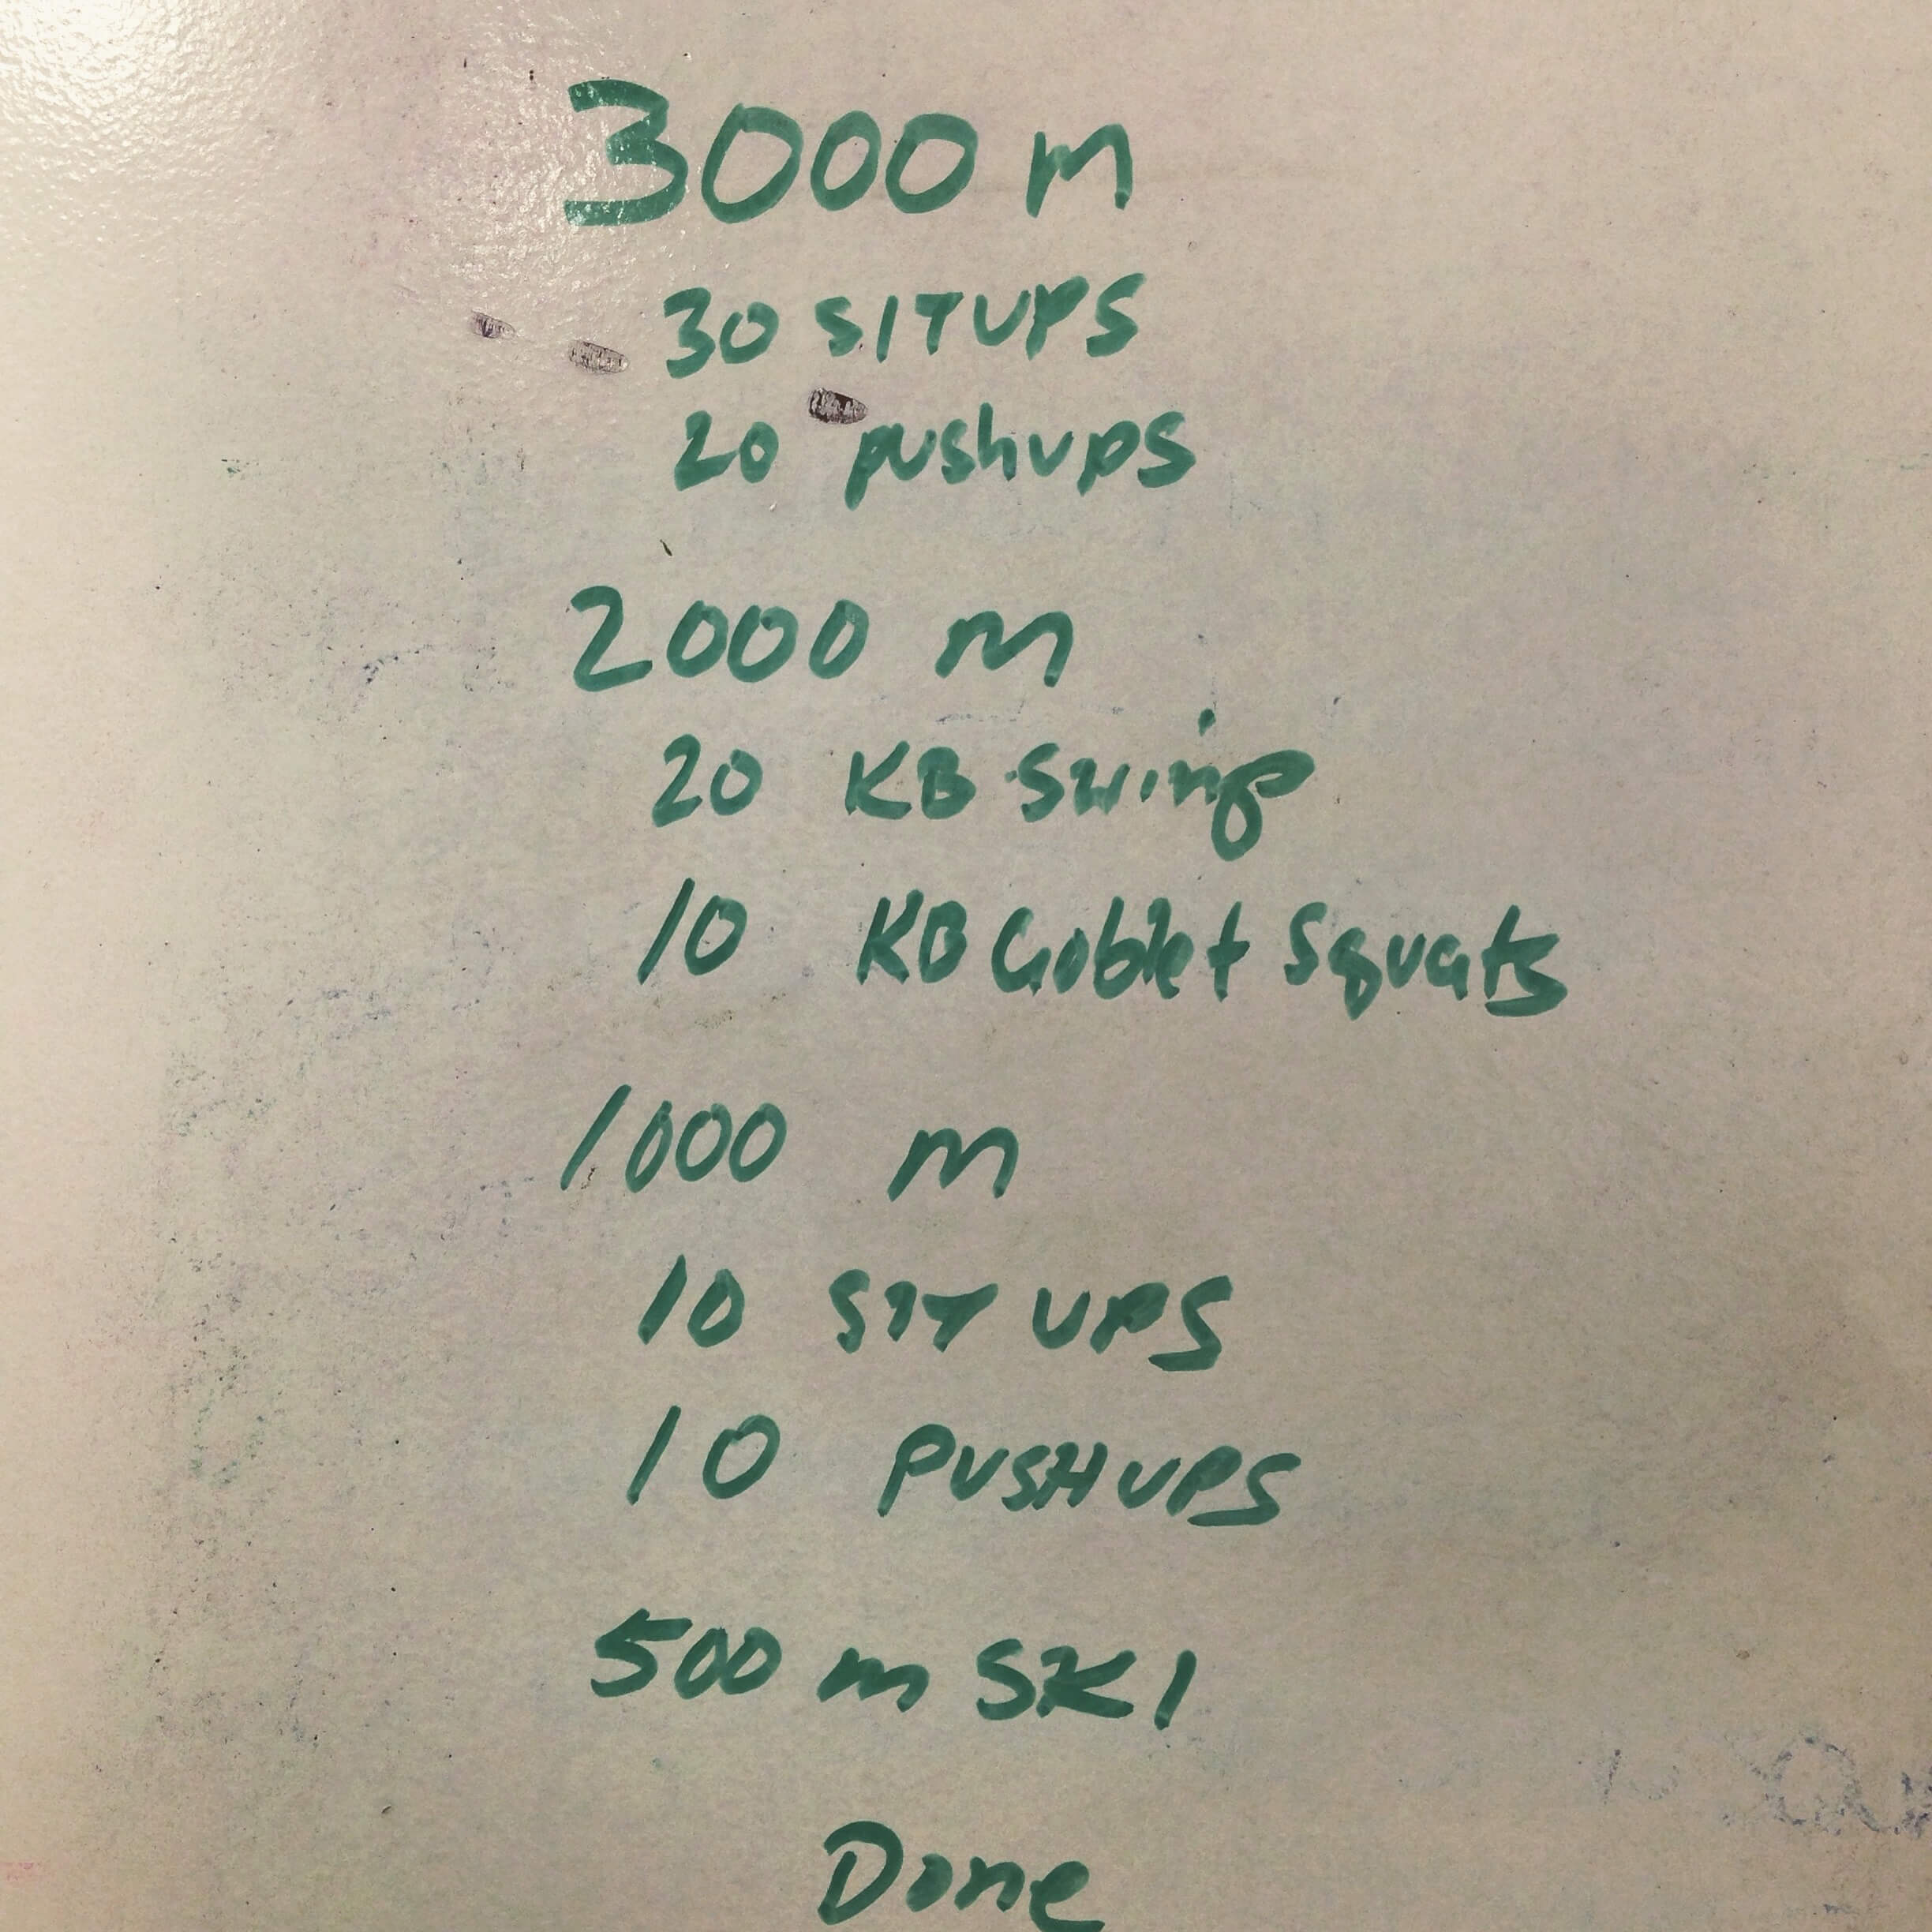 3000 m
30 SITUPS
20 pushups
2000 m
20 KB Swings
10 KB Goblet Squats
1000 m
10 SIT UPS
10 PUSHUPS
500 m SKI
Done